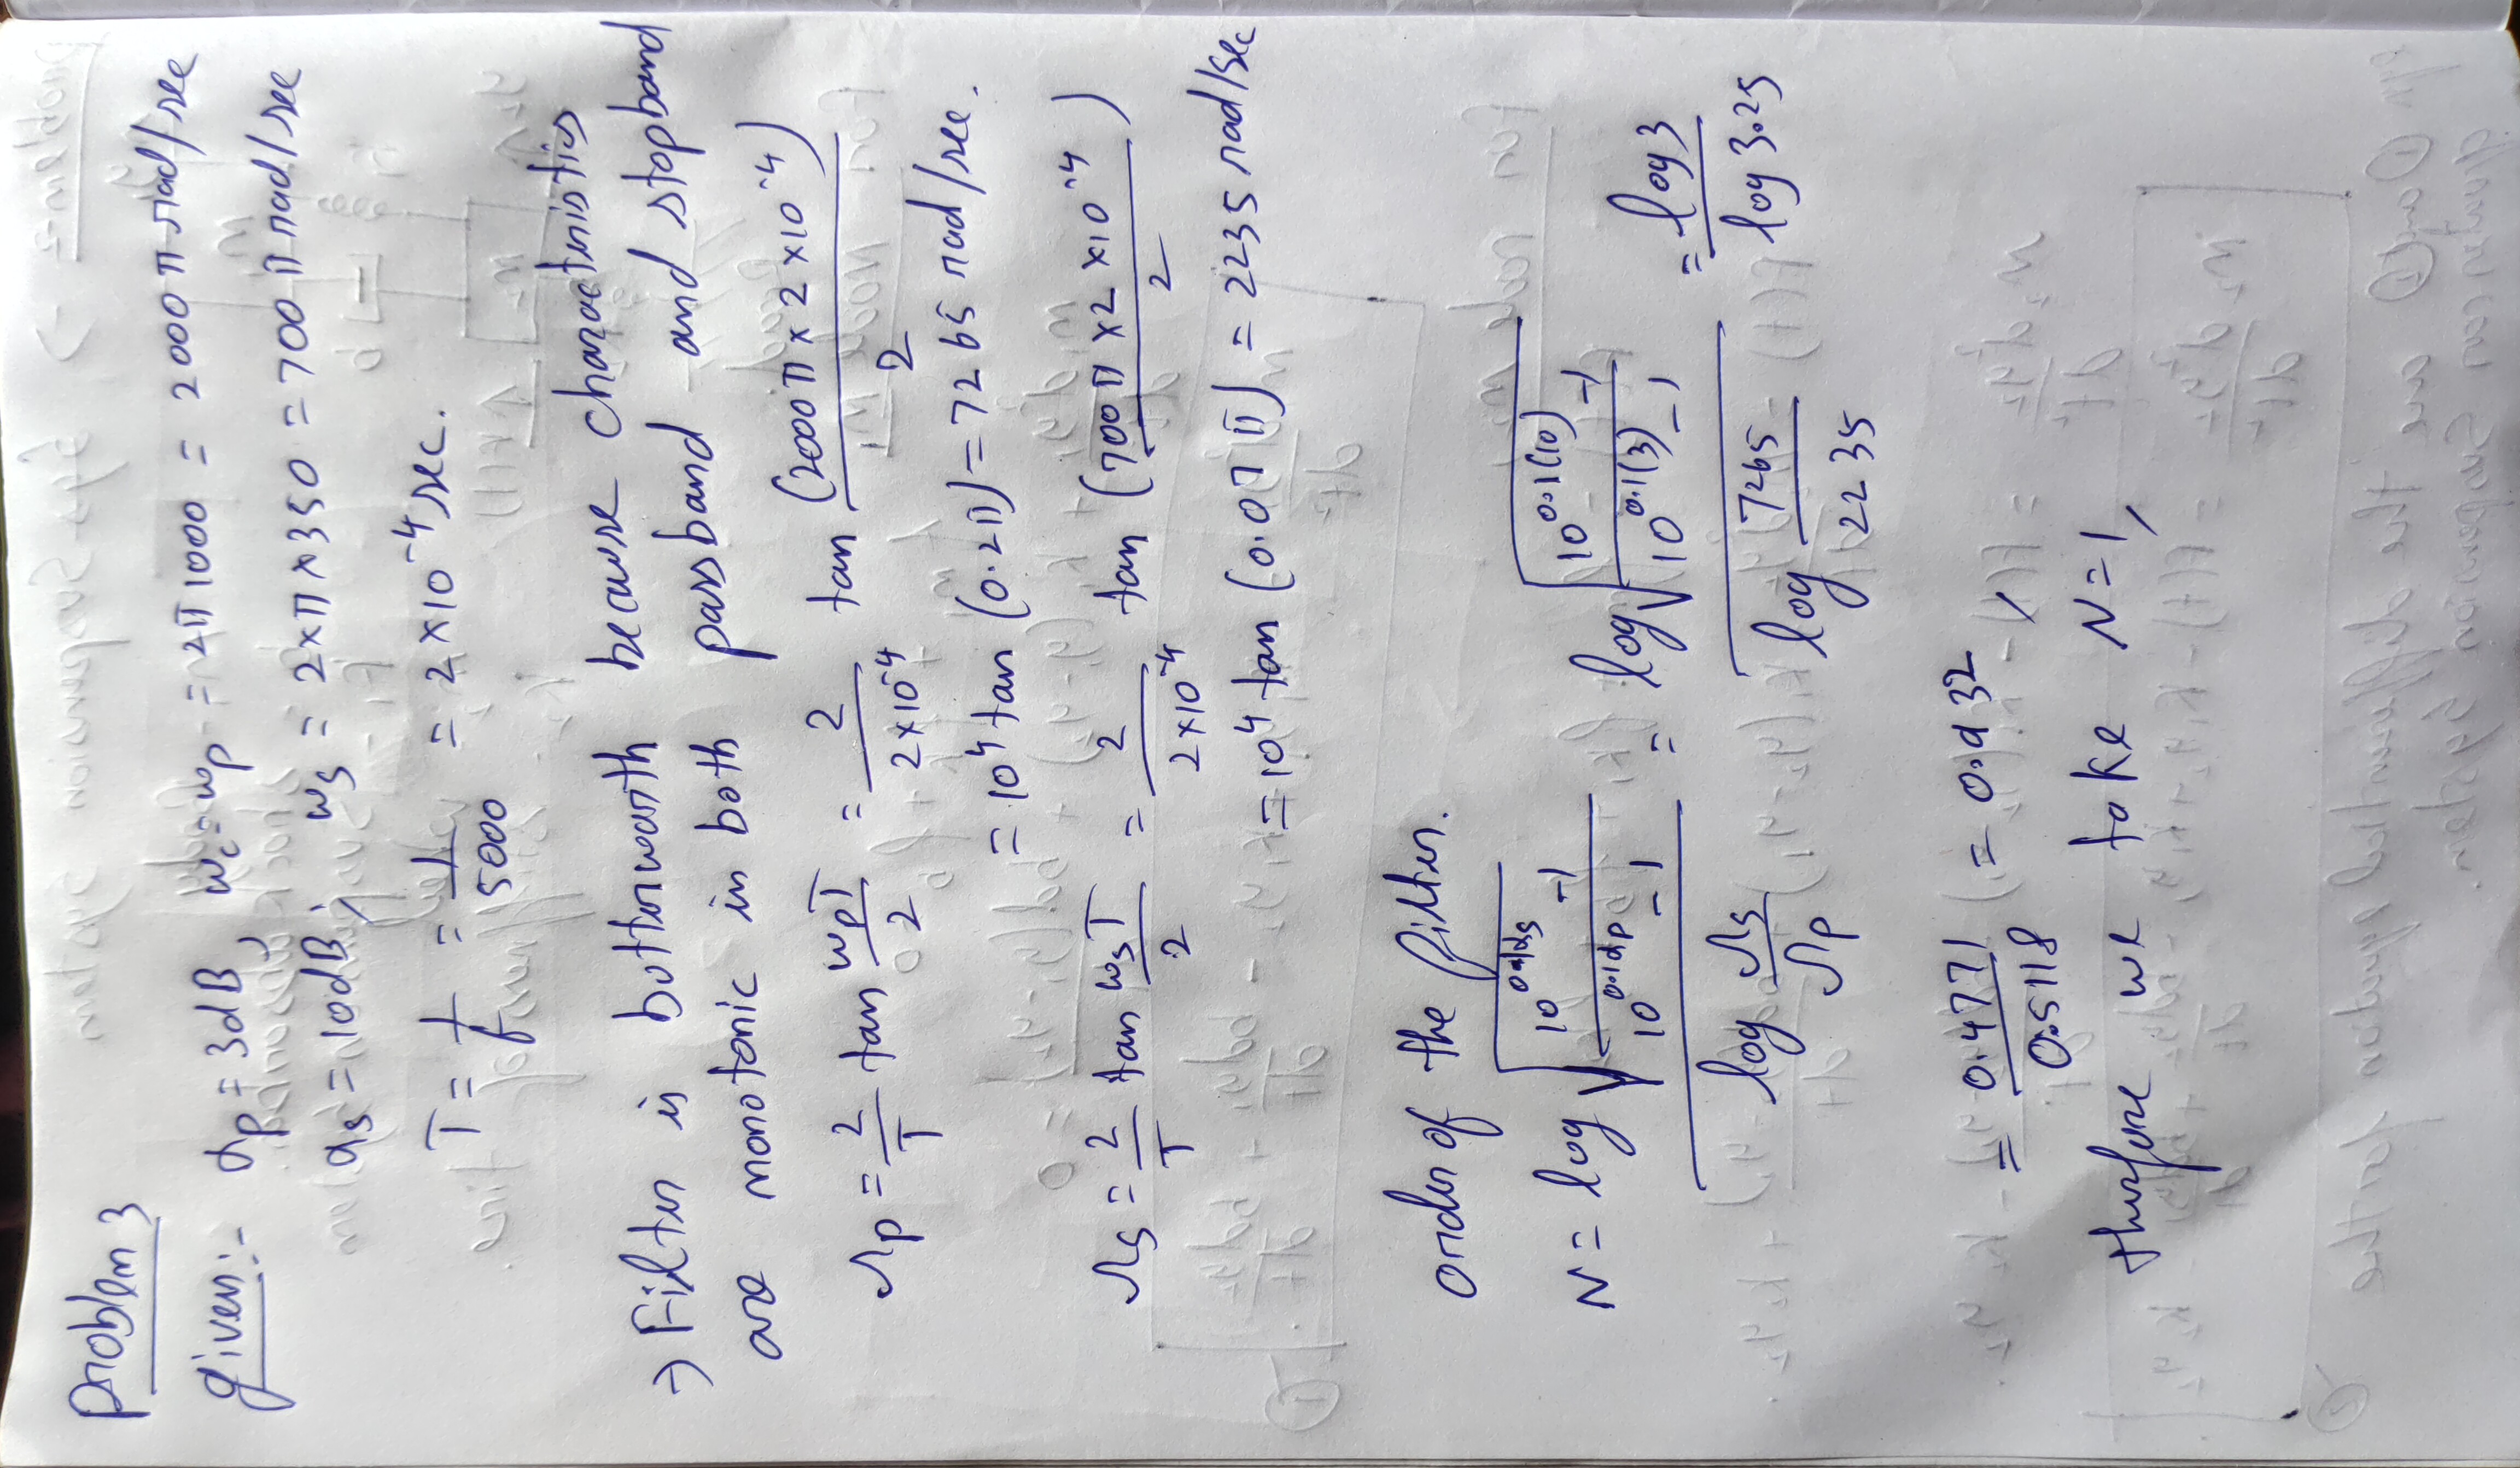 Problem 3
given:- αp = 3dB, ωc = ωp = 2π1000 = 2000π rad/sec
αs = 10dB; ωs = 2×π×350 = 700π rad/sec
T = 1/f = 1/5000 = 2×10^-4 sec.
→ Filter is butterworth because characteristics
are monotonic in both passband and stopband
Ωp = 2/T tan ωpT/2 = 2/(2×10^-4) tan (2000π × 2 ×10^-4)/2
= 10^4 tan (0.2π) = 7265 rad/sec.
Ωs = 2/T tan ωsT/2 = 2/(2×10^-4) tan (700π ×2 ×10^-4 / 2)
= 10^4 tan (0.07π) = 2235 rad/sec
order of the filter.
N = log √((10^0.1αs - 1)/(10^0.1αp - 1)) / log Ωs/Ωp = log √((10^0.1(10) - 1)/(10^0.1(3) - 1)) / log 7265/2235 = log3/log 3.25
= 0.4771/0.5118 = 0.932,
therefore we take N=1,